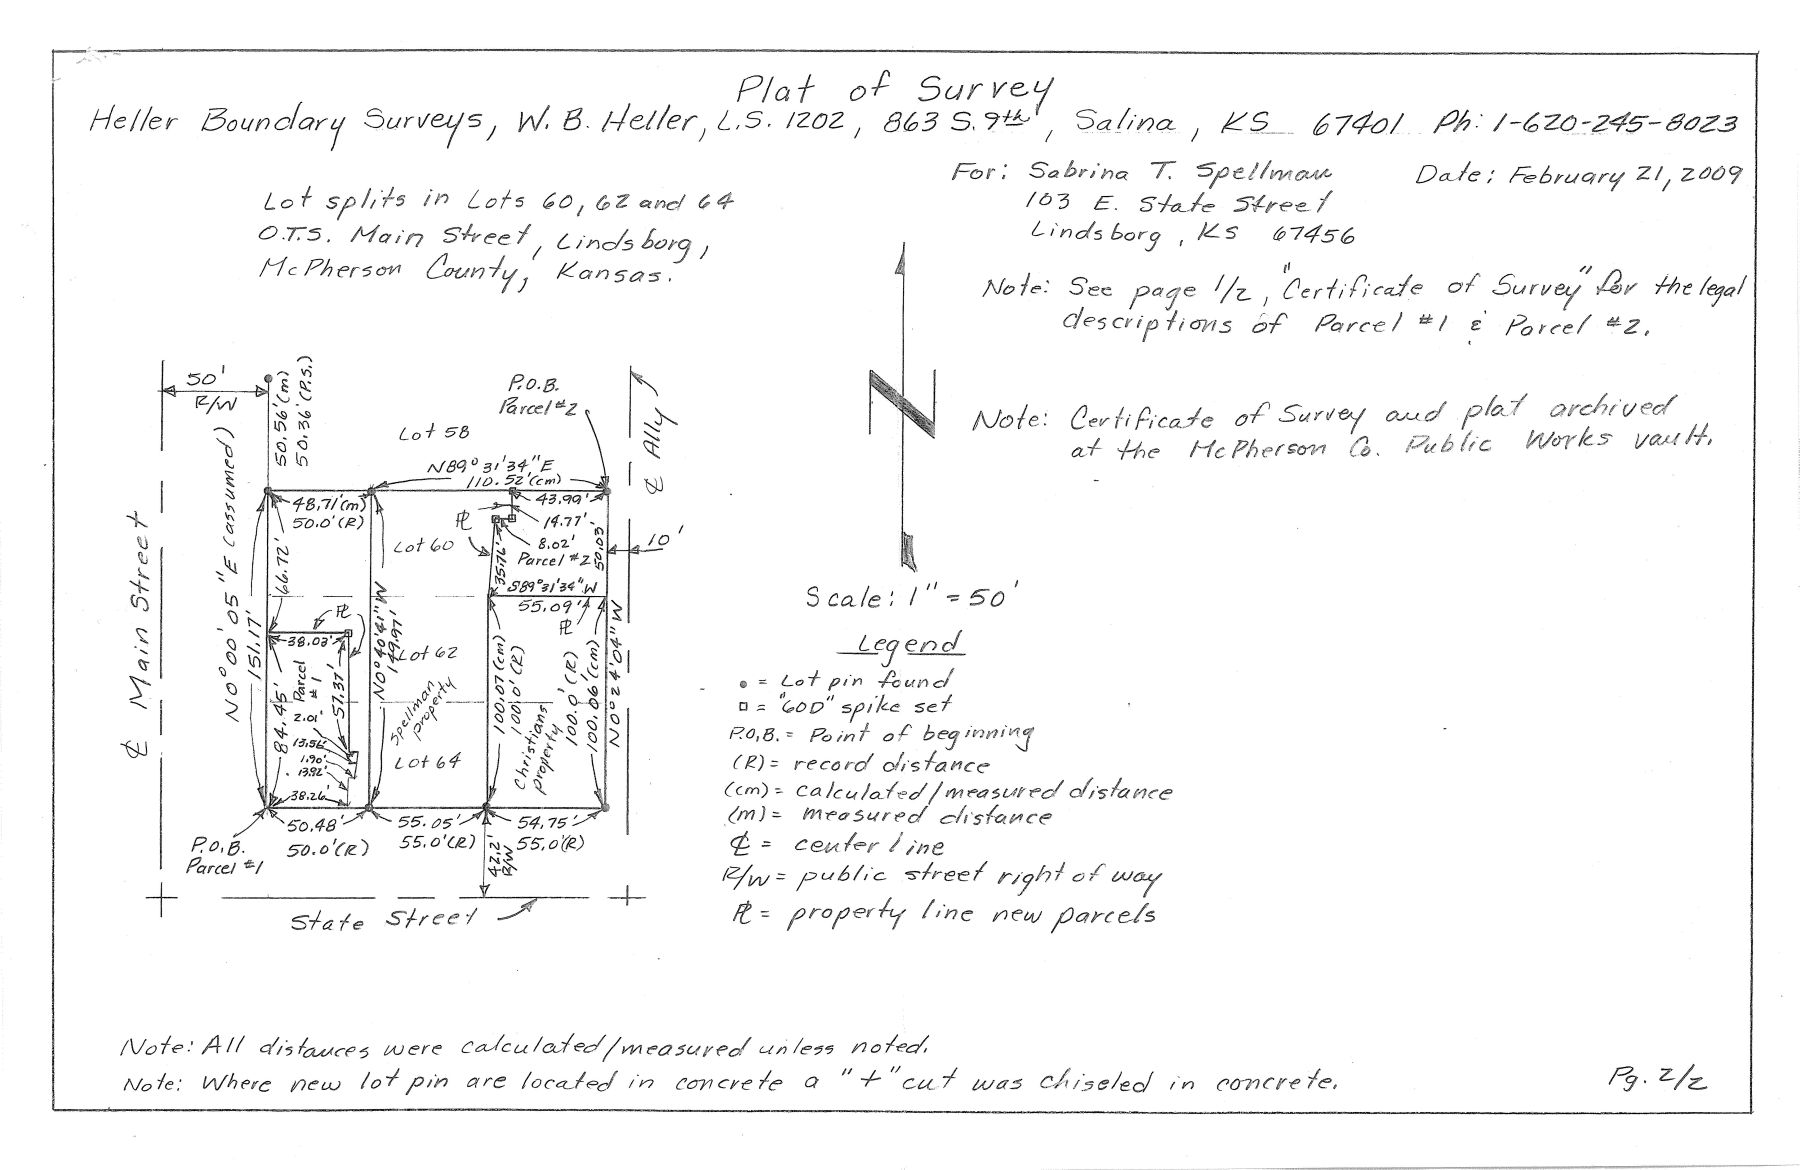 Plat of Survey
Heller Boundary Surveys, W. B. Heller, L.S. 1202, 863 S. 9th, Salina, KS 67401 Ph: 1-620-245-8023
For: Sabrina T. Spellman
103 E. State Street
Lindsborg, KS 67456
Date: February 21, 2009
Lot splits in Lots 60, 62 and 64
O.T.S. Main Street, Lindsborg,
McPherson County, Kansas.
Note: See page 1/2, "Certificate of Survey" for the legal
descriptions of Parcel #1 & Parcel #2.
Note: Certificate of Survey and plat archived
at the McPherson Co. Public Works vault.
50'
R/W
50.56'(m)
50.36'(P.S.)
P.O.B.
Parcel #2
Lot 58
℄ Ally
N89°31'34"E
110.52'(cm)
48.71'(m)
50.0'(R)
43.99'
14.77'
8.02'
Parcel #2
50.03'
10'
℄ Main Street
N0°00'05"E (assumed)
151.17'
66.72'
Lot 60
PL
35.76'
S89°31'34"W
55.09'
PL
PL
38.03'
N0°40'41"W
149.97'
Lot 62
Parcel
#1
57.37'
2.01'
84.45'
13.56'
1.90'
13.92'
38.26'
Spellman
property
Lot 64
100.07'(cm)
100.0'(R)
Christians
property
100.0'(R)
100.06'(cm)
N0°24'04"W
50.48'
50.0'(R)
55.05'
55.0'(R)
54.75'
55.0'(R)
P.O.B.
Parcel #1
42.2'
R/W
State Street
N
Scale: 1" = 50'
Legend
• = Lot pin found
□ = "60D" spike set
P.O.B. = Point of beginning
(R) = record distance
(cm) = calculated/measured distance
(m) = measured distance
℄ = center line
R/W = public street right of way
PL = property line new parcels
Note: All distances were calculated/measured unless noted.
Note: Where new lot pin are located in concrete a "+" cut was chiseled in concrete.
Pg. 2/2